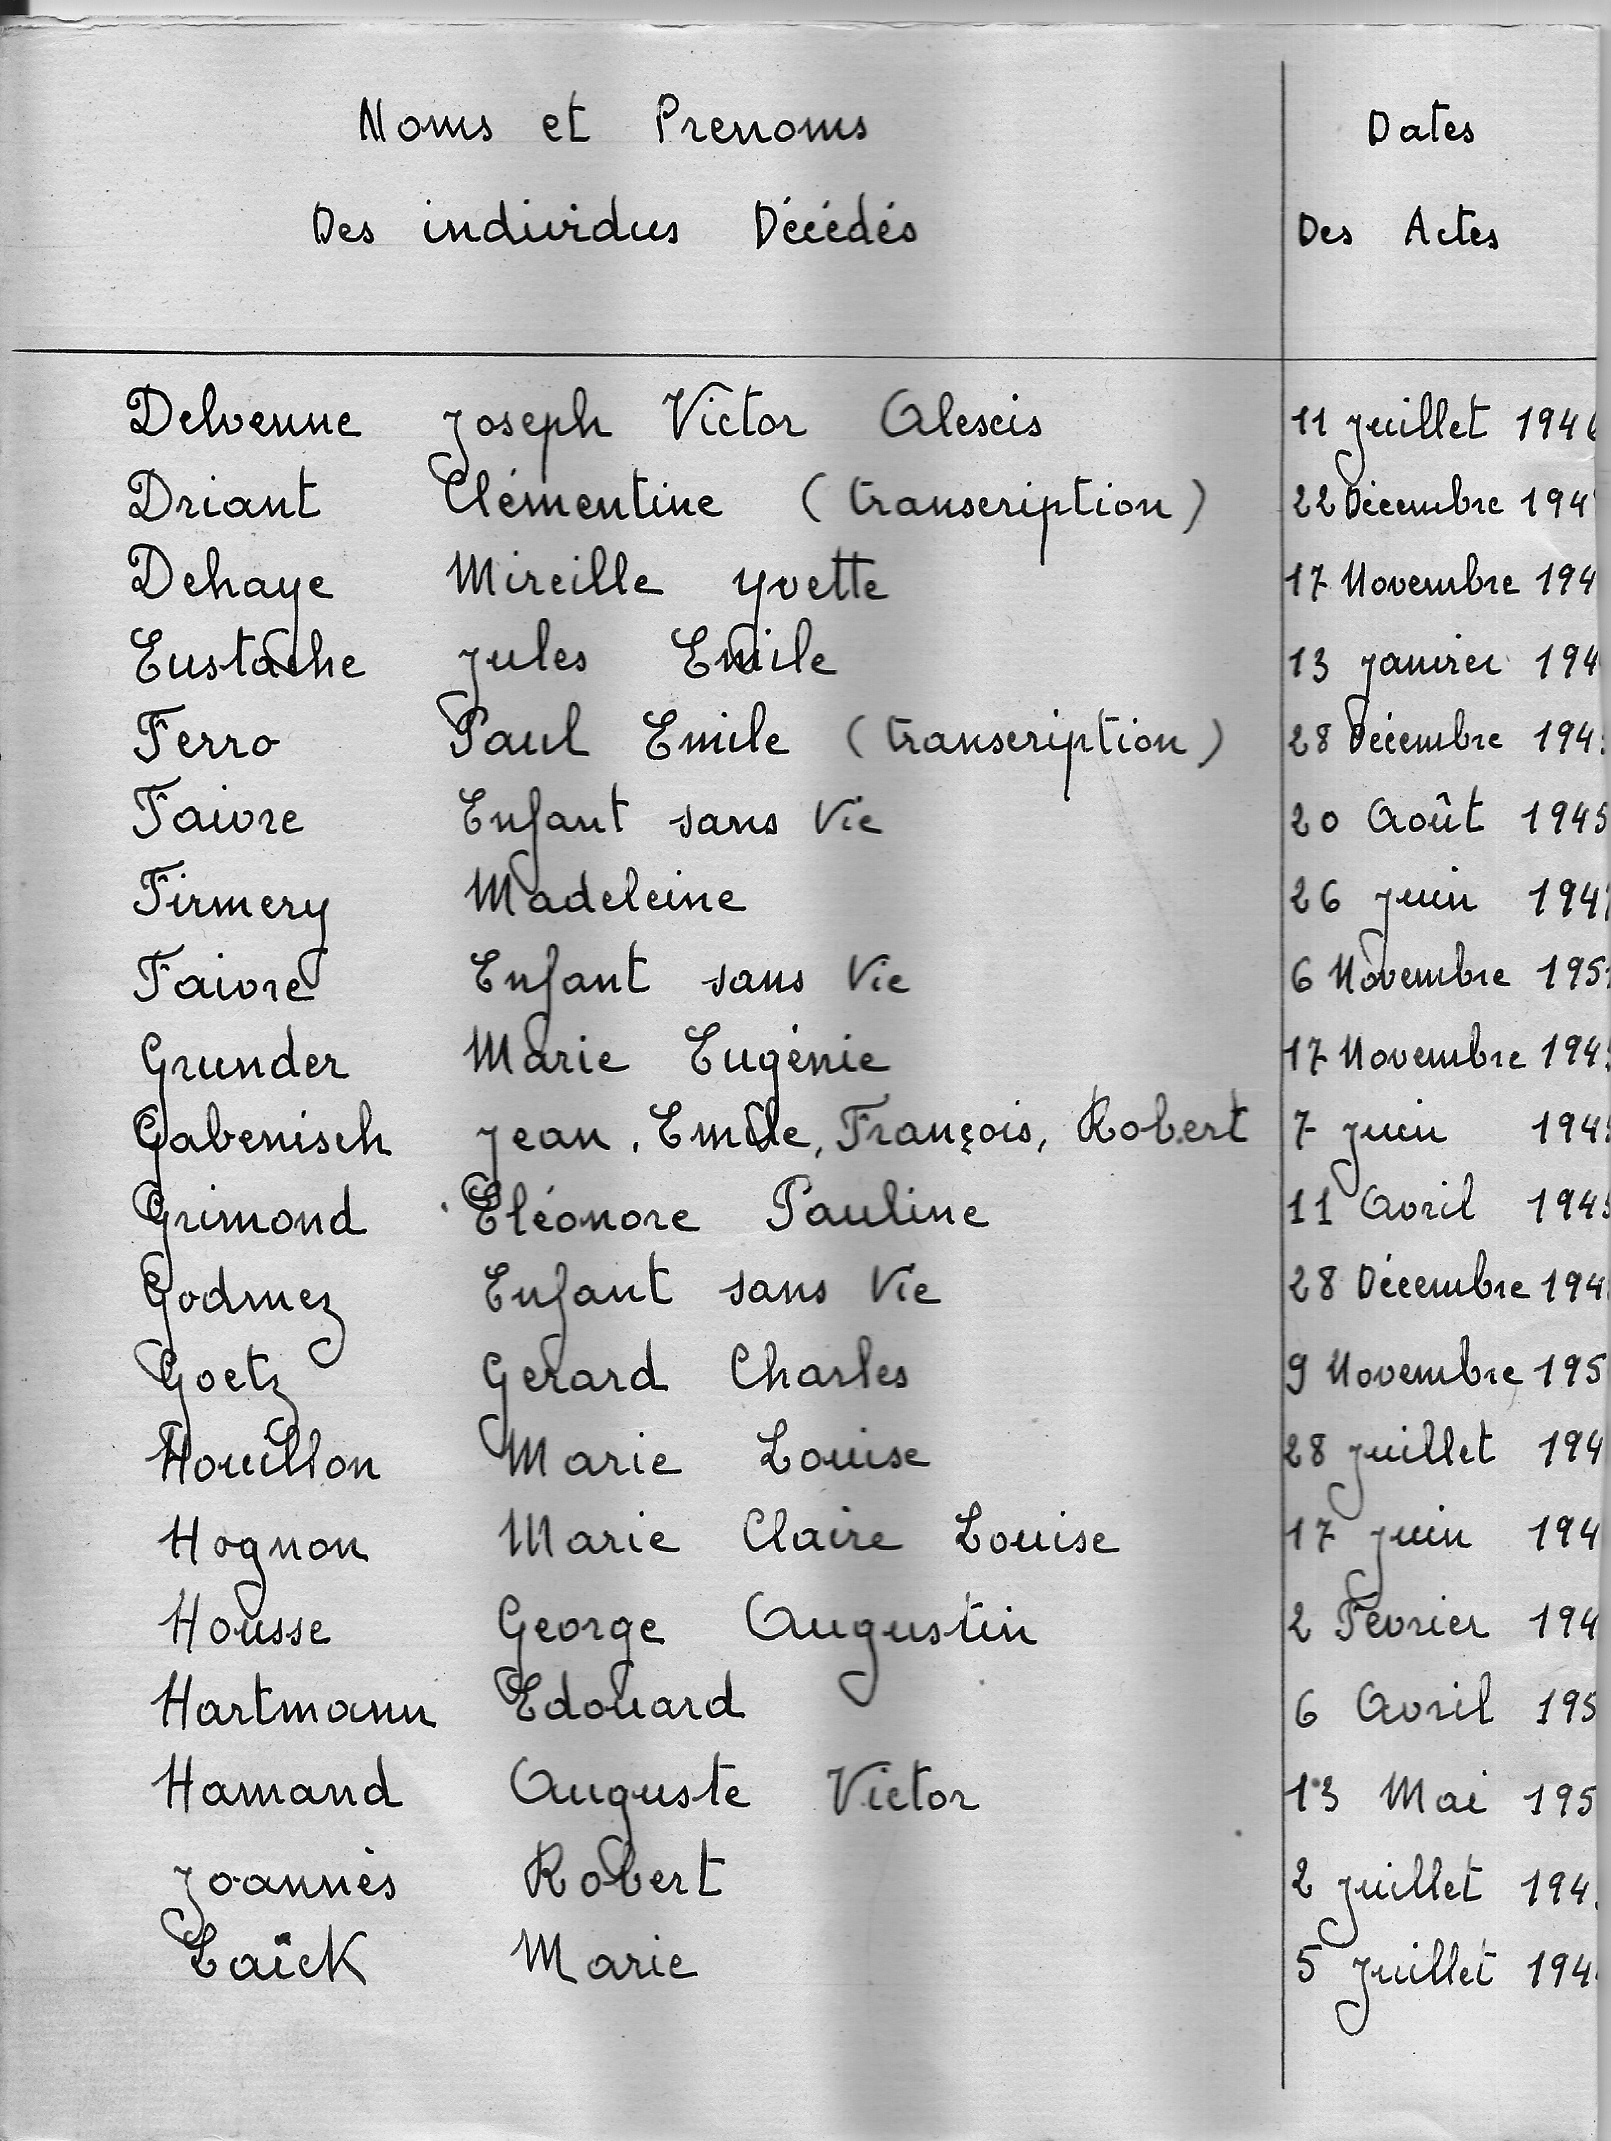 Noms et Prenoms Dates
Des individus Décédés Des Actes
Delvenne Joseph Victor Alexis 11 juillet 1946
Driant Clémentine (transcription) 22 Décembre 194
Dehaye Mireille Yvette 17 Novembre 194
Eustache Jules Emile 13 janvier 194
Ferro Paul Emile (transcription) 28 Décembre 194
Faivre Enfant sans Vie 20 Août 1945
Firmery Madeleine 26 juin 194
Faivre Enfant sans Vie 6 Novembre 195
Grunder Marie Eugénie 17 Novembre 194
Gabenisch Jean, Emile, François, Robert 7 juin 194
Grimond Eléonore Pauline 11 Avril 194
Godmez Enfant sans Vie 28 Décembre 194
Goetz Gérard Charles 9 Novembre 195
Houillon Marie Louise 28 juillet 194
Hognon Marie Claire Louise 17 juin 194
Housse George Augustin 2 Février 194
Hartmann Edouard 6 Avril 195
Hamand Auguste Victor 13 Mai 195
Joannès Robert 2 juillet 194
Laïck Marie 5 juillet 194